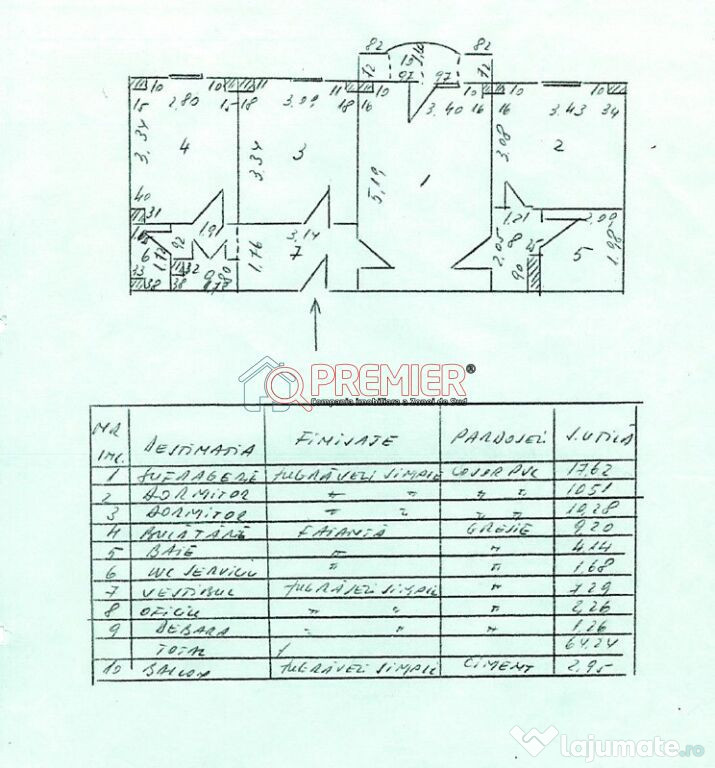 82 82
12 10 1,16 12
97 97
10 10 11 11 10 10 10
15 2,80 15 18 3,09 18 16 3,40 16 16 3,43 34
3,34 3,34 5,19 3,08
4 3 1 2
40
31
1,91 3,14 1,21 2,09
6 1,12 92 1,76 7 2,05 8 25 5 1,98
33 32 9 80 90
38 38
PREMIER®
Compania imobiliara a Zonei de Sud
NR INC. DESTINATIA FINISATE PARDOSELI S.UTILĂ
1 SUFRAGERIE ZUGRĂVELI SIMPLE COVOR PVC 17,62
2 DORMITOR " " " " 10,51
3 DORMITOR " " " " 10,28
4 BUCĂTĂRIE FAIANTĂ GRESIE 9,20
5 BAIE " " 4,14
6 WC SERVICIU " " 1,68
7 VESTIBUL ZUGRĂVELI SIMPLE " 7,29
8 OFICIU " " " 2,26
9 DEBARA " " " 1,26
TOTAL 64,24
10 BALCON ZUGRĂVELI SIMPLE CIMENT 2,95
lajumate.ro